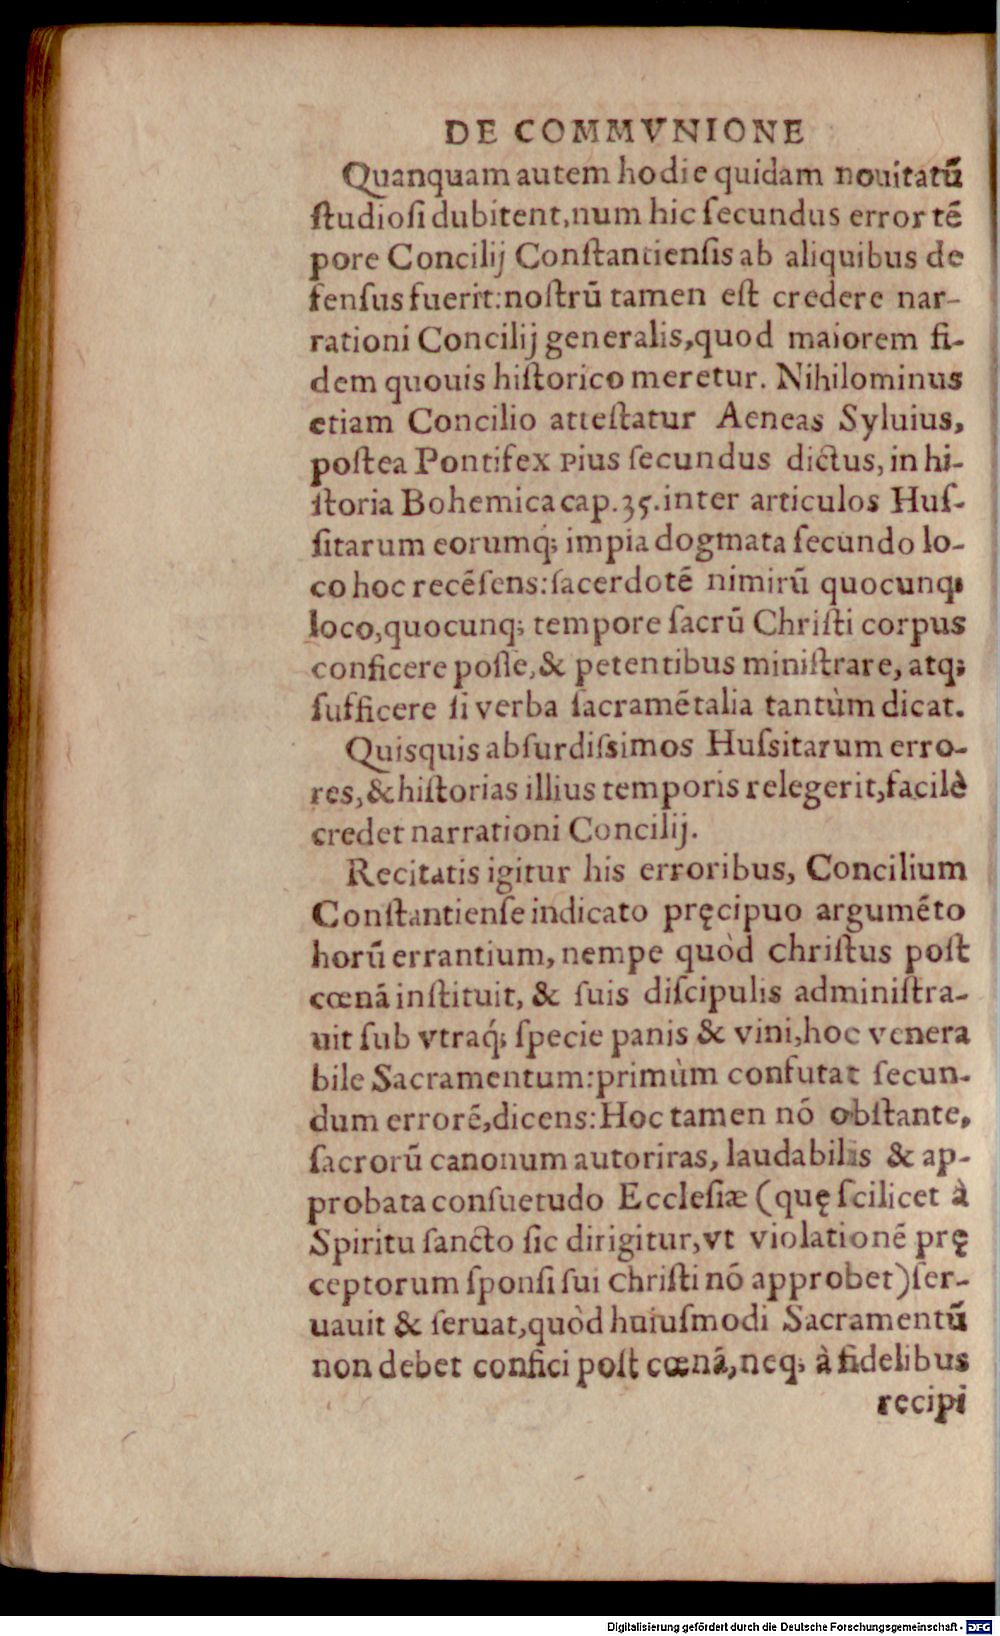 DE COMMVNIONE
Quanquam autem hodie quidam nouitatū
ſtudioſi dubitent,num hic ſecundus error tē
pore Concilij Conſtantienſis ab aliquibus de
fenſus fuerit:noſtrū tamen eſt credere nar-
rationi Concilij generalis,quod maiorem fi-
dem quouis hiſtorico meretur. Nihilominus
etiam Concilio atteſtatur Aeneas Syluius,
poſtea Pontifex Pius ſecundus dictus, in hi-
ſtoria Bohemica cap.35.inter articulos Huſ-
ſitarum eorumq́; impia dogmata ſecundo lo-
co hoc recēſens:ſacerdotē nimirū quocunq;
loco,quocunq; tempore ſacrū Chriſti corpus
conficere poſſe,& petentibus miniſtrare, atq;
ſufficere ſi verba ſacramētalia tantùm dicat.
Quisquis abſurdiſsimos Huſsitarum erro-
res,& hiſtorias illius temporis relegerit,facilè
credet narrationi Concilij.
Recitatis igitur his erroribus, Concilium
Conſtantienſe indicato pręcipuo argumēto
horū errantium, nempe quòd Chriſtus poſt
cœnā inſtituit, & ſuis diſcipulis adminiſtra-
uit ſub vtraq́; ſpecie panis & vini,hoc venera
bile Sacramentum:primùm confutat ſecun-
dum errorē,dicens:Hoc tamen nō obſtante,
ſacrorū canonum autoriras, laudabilis & ap-
probata conſuetudo Eccleſiæ (quę ſcilicet à
Spiritu ſancto ſic dirigitur,vt violationē prę
ceptorum ſponſi ſui Chriſti nō approbet)ſer-
uauit & ſeruat,quòd huiuſmodi Sacramentū
non debet confici poſt cœnā,neq; à fidelibus
recipi
Digitalisierung gefördert durch die Deutsche Forschungsgemeinschaft - DFG